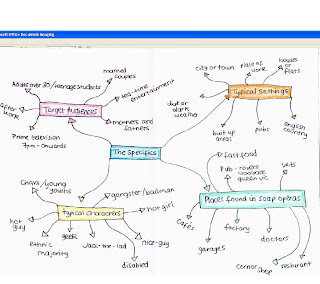 Document Imaging
Adults over 30/teenage students
married
couples
tea-time
entertainment
Target Audiences
after
work
mothers and
fathers
Prime television
7pm-onwards
city or town
place of
work
houses
or
flats
Typical Settings
dull or
dark
weather
built up
areas
pubs
english
country
The Specifics
Chavs/young
youths
gangster/badman
hot girl
Typical Characters
hot
guy
Ethnic
majority
geek
Jack-the-lad
nice-guy
disabled
fast food
Pub - rovers
woolpack
queen vic
vets
Places found in soap operas
cafes
garages
factory
doctors
corner
shop
resturant